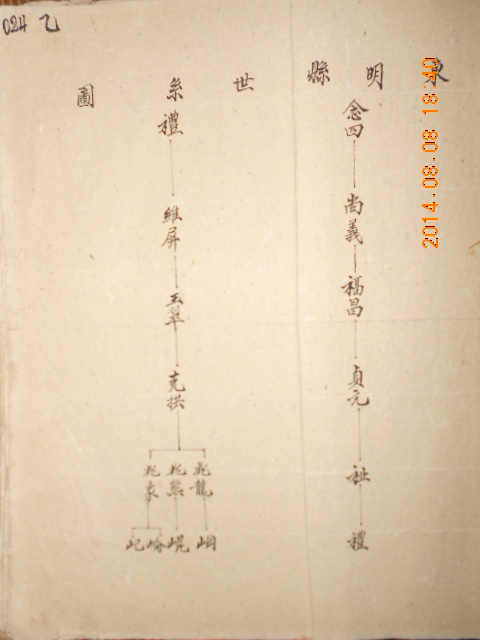 024 乙
東明縣世系圖
念四
尚義
福昌
貞元
祉
禮
禮
維屏
玉翠
克拱
兆龍
兆熊
兆
崐
崙
2014.08.08 18:40